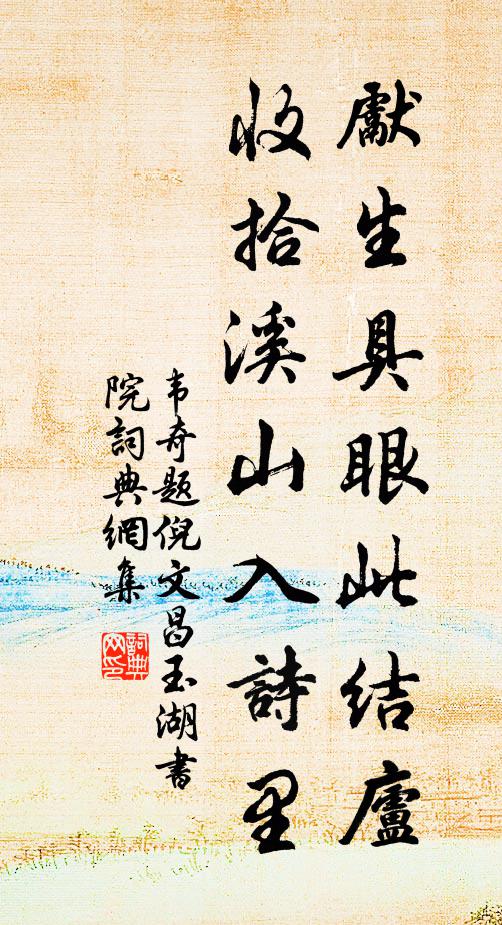 獻生具眼此結廬
收拾溪山入詩里
韦奇题倪文昌玉湖書
院詞典網集
詞典
网印